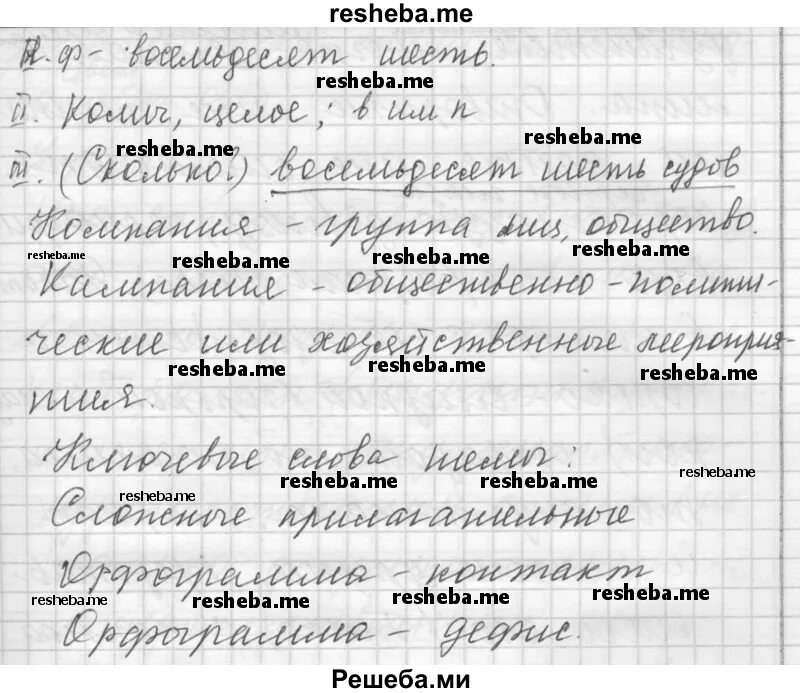 resheba.me
Н.ф – восемьдесят шесть.
resheba.me
II. Колич, целое; в им п
resheba.me resheba.me
III. (Сколько?) восемьдесят шесть судов
Компания – группа лиц, общество.
resheba.me resheba.me resheba.me resheba.me
Кампания – общественно-полити-
ческие или хозяйственные мероприя-
resheba.me resheba.me resheba.me
тия.
Ключевые слова темы:
resheba.me resheba.me resheba.me resheba.me
Сложные прилагательные
Орфограмма – контакт
resheba.me resheba.me resheba.me resheba.me
Орфограмма – дефис.
Решеба.ми